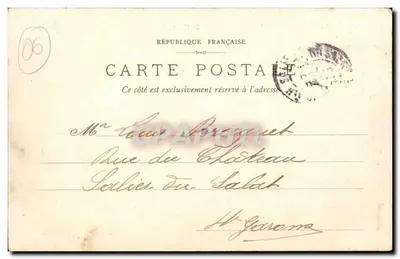 06
RÉPUBLIQUE FRANÇAISE
CARTE POSTA
Ce côté est exclusivement réservé à l'adresse
Mr Louis
Rue du Château
Salies du Salat
Hte Garonne